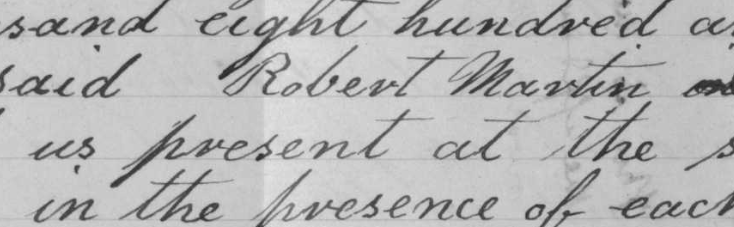 sand eight hundred a
said Robert Martin
us present at the s
in the presence of each